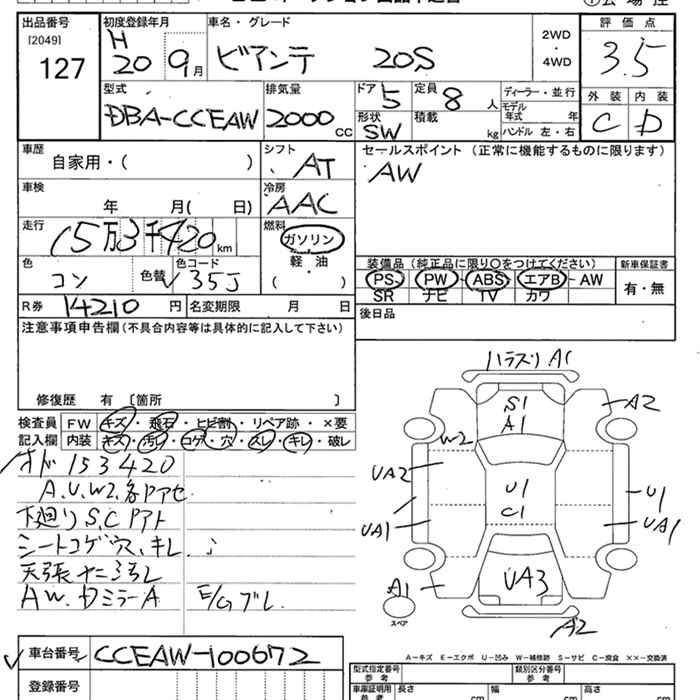 出品番号 初度登録年月 車名・グレード 評価点
[2049] 127 H 20 9月 ビアンテ 20S 2WD 4WD 3.5
型式 排気量 ドア 5 定員 8人 ディーラー・並行 外装 内装
DBA-CCEAW 2000cc 形状 SW 積載 kg モデル年式 年 ハンドル 左・右 C D
車歴 自家用・( ) シフト AT セールスポイント (正常に機能するものに限ります)
AW
車検 年 月( 日) 冷房 AAC
走行 15万3千420km 燃料 ガソリン 軽・油 ( )
色 コン 色替 色コード 35J
装備品 (純正品に限り○をつけてください) 新車保証書
PS PW ABS エアB AW 有・無
SR ナビ TV カワ
R券 14210円 名変期限 月 日 後日品
注意事項申告欄 (不具合内容等は具体的に記入して下さい)
修復歴 有 [箇所 ]
検査員 FW キズ・飛石・ヒビ割・リペア跡・×要
記入欄 内装 キズ・汚レ・コゲ・穴・スレ・キレ・破レ
オド 153420
A.U.W2.各Pアセ
下廻りS,C Pアト
シートコゲ穴、キレ
AW.ドミラーA E/Gブレ
A1
S1
A1
A2
W2
UA2
U1
C1
U1
UA1
UA1
UA3
A1
スペア
A2
A-キズ E-エクボ U-凹み W-補修跡 S-サビ C-腐食 ××-交換済
車台番号 CCEAW-100672
型式指定番号 参考 類別区分番号 参考
登録番号 車庫証明用 参考 長さ cm 幅 cm 高さ cm